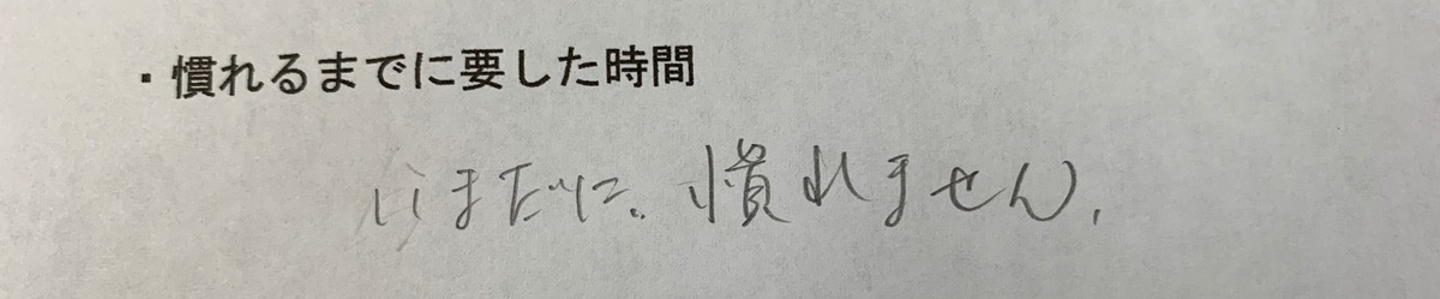 ・慣れるまでに要した時間
いまだに、慣れません、